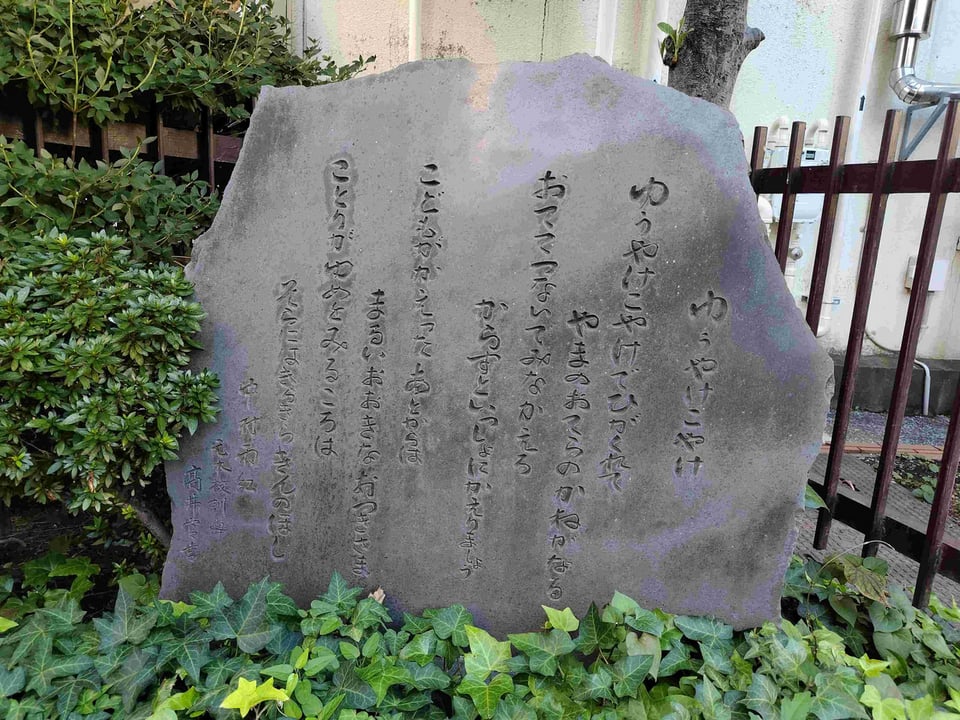 ゆうやけこやけ
ゆうやけこやけでひがくれて
やまのおてらのかねがなる
おててつないでみなかえろ
からすといっしょにかえりましょう
こどもがかえったあとからは
まるいおおきなおつきさま
ことりがゆめをみるころは
そらにはきらきらきんのほし
中村雨紅
元本校訓導
高井宮吉